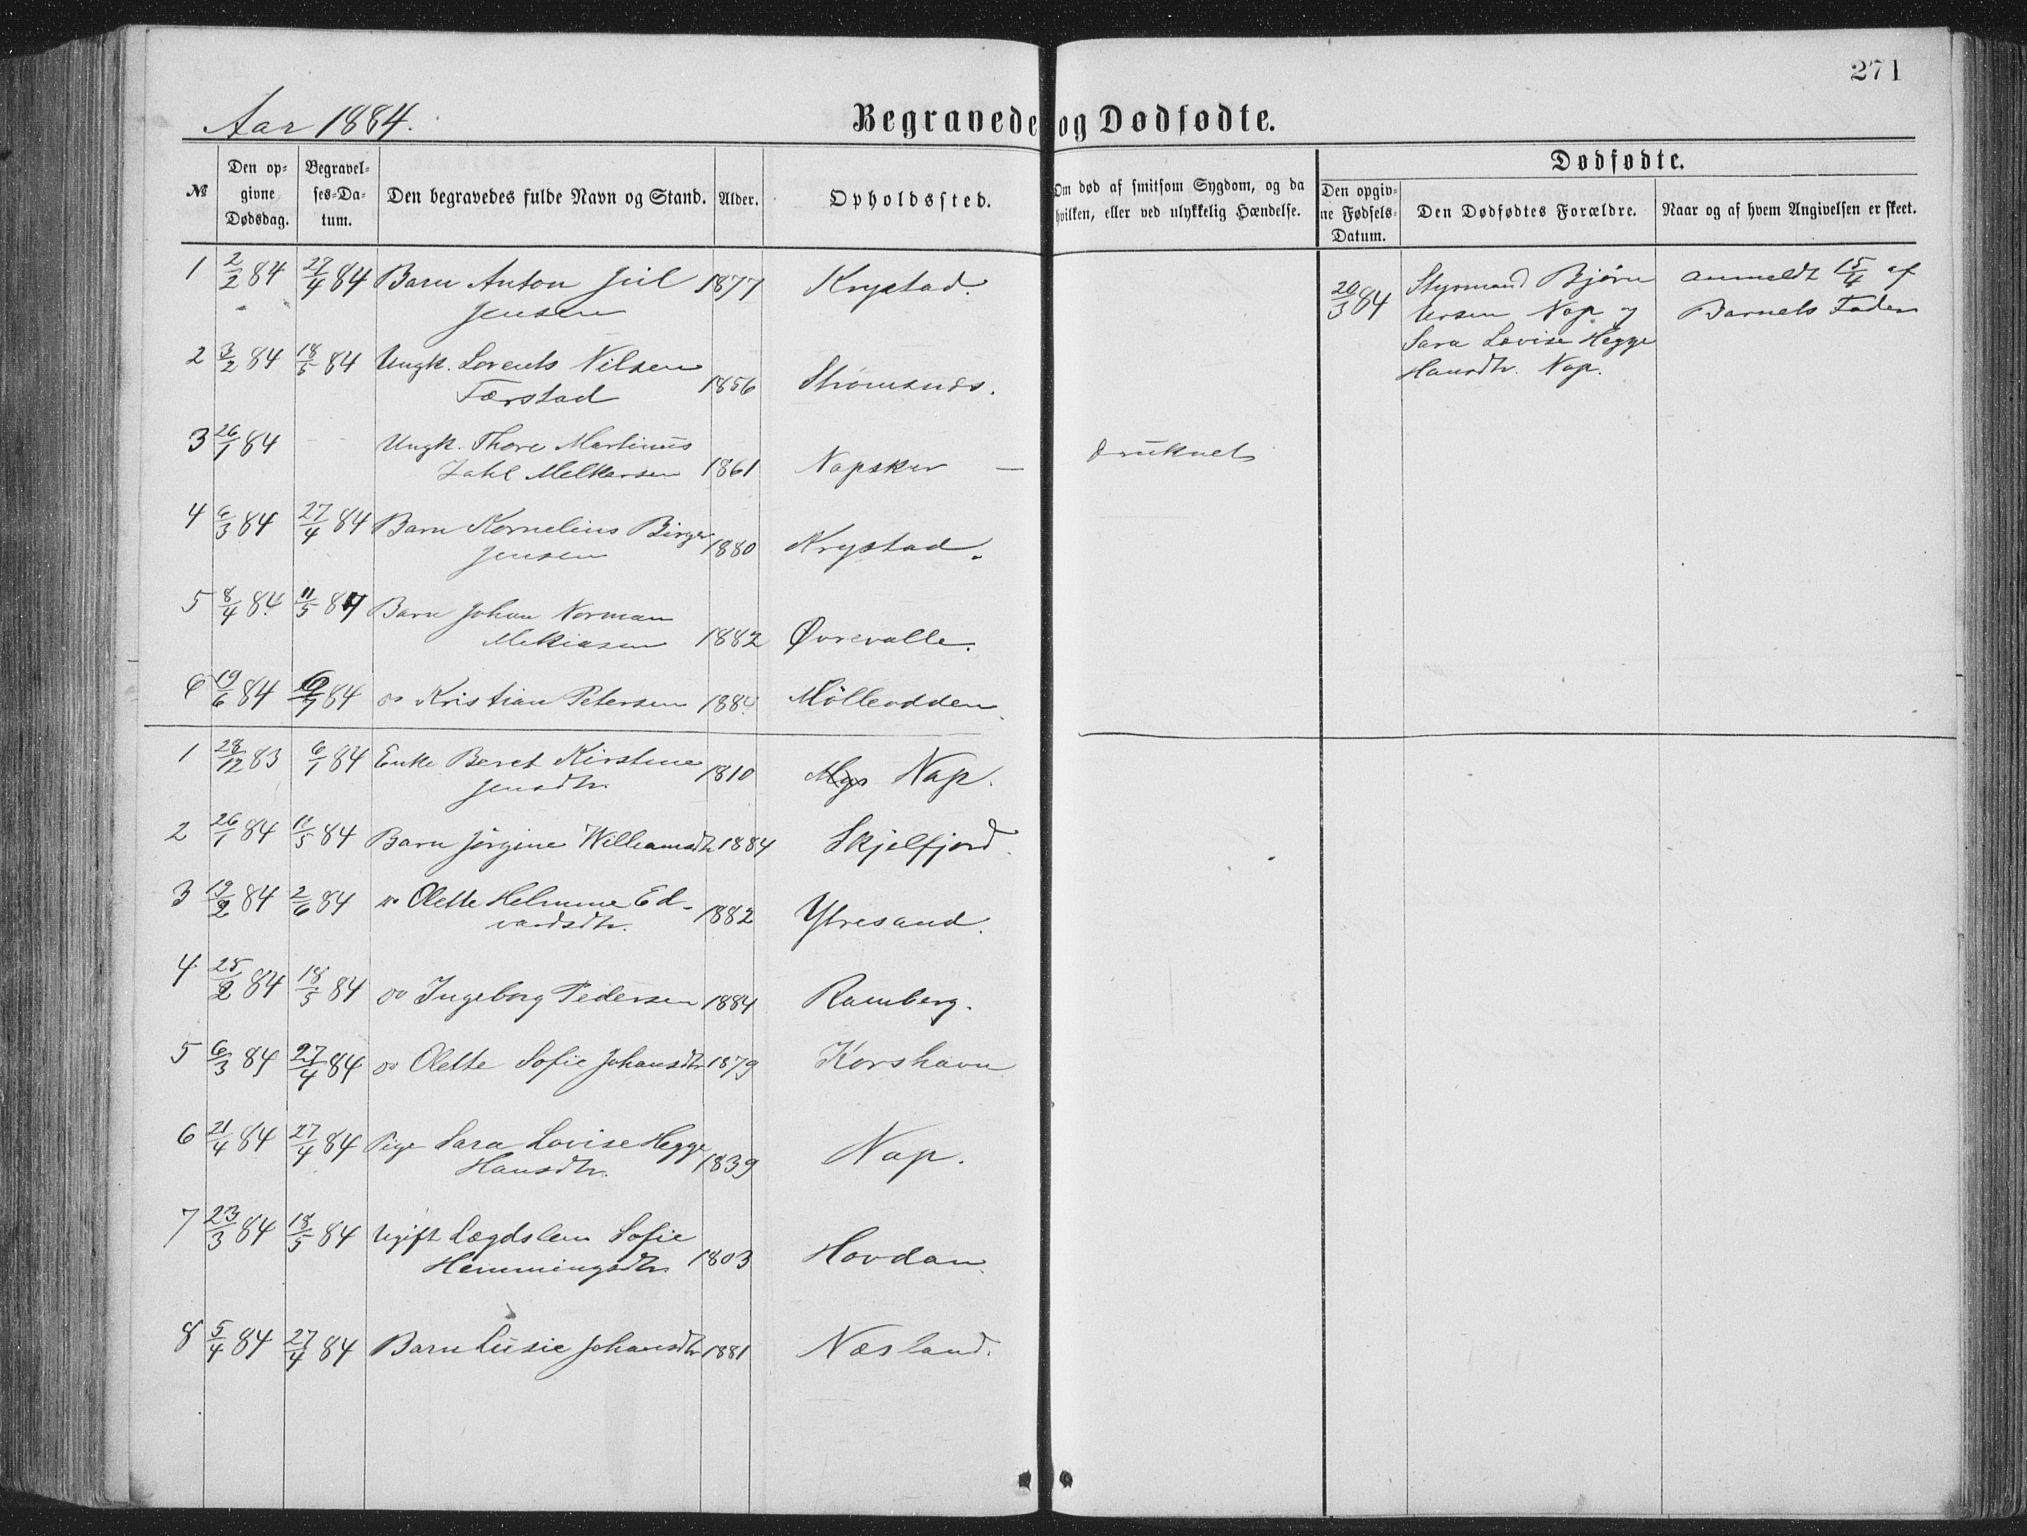 271
Aar 1884.
Begravede og Dødfødte.
№
Den opgivne Dødsdag.
Begravelses-Datum.
Den begravedes fulde Navn og Stand.
Alder.
Opholdssted.
Om død af smitsom Sygdom, og da hvilken, eller ved ulykkelig Hændelse.
Dødfødte.
Den opgivne Fødsels-Datum.
Den Dødfødtes Forældre.
Naar og af hvem Angivelsen er skeet.
1 2/2 84 27/4 84 Barn Anton Jul 1877 Krystad.
Jensen
20/3 84 Styrmand Bjørn anmeldt 15/4 af
Nap og Barnets Fader
Sara Lovise Hegge
Hansdtr. Nap.
2 3/2 84 18/5 84 Ungk. Lorents Nilsen
Færstad 1856 Strømsnes.
3 26/1 84 Ungk. Thore Martinus
Zahl Melkersen 1861 Napskar — druknet
4 6/3 84 27/4 84 Barn Kornelius Birger
Jensen 1880 Krystad.
5 8/4 84. 11/5 84 Barn Johan Norman
Mekiasen 1882 Øvrevalle.
6 19/6 84 84 do Kristian Petersen 1884. Mölleodden.
1 28/12 83 6/1 84 Enke Beret Kirstine
Jensdtr. 1810 Nap.
2 26/1 84 11/5 84 Barn Jørgine Williamsdtr 1884 Skjelfjord.
3 19/2 84 2/6 84 do Olette Helmine Ed-
vardsdtr. 1882 Ytresand.
4 25/2 84 18/5 84 do Ingeborg Pedersen 1884 Ramberg.
5 6/3 84 27/4 84 do Olette Sofie Johansdtr 1879 Korshavn
6 21/4 84 27/4 84 Pige Sara Lovise Hegge
Hansdtr. 1839 Nap.
7 23/3 84 18/5 84 Ugift Lægdslem Sofie
Hemmingsdtr 1803 Hovdan.
8 5/4 84 27/4 84 Barn Lusie Johansdtr 1881 Næsland.